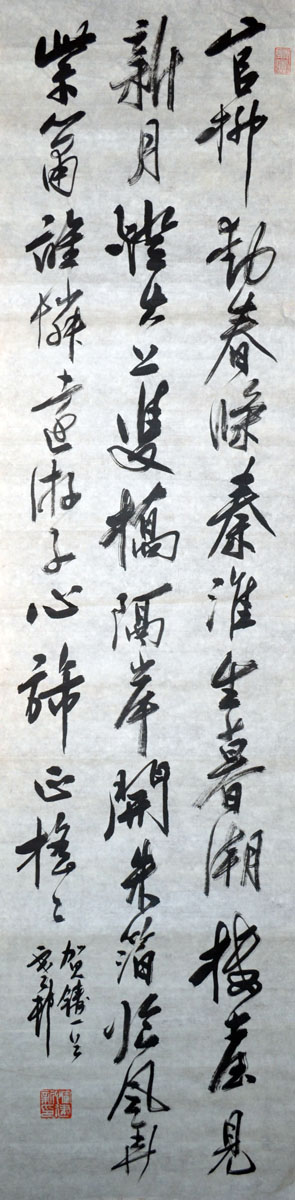 官柳動春條秦淮生暮潮楼臺見
新月燈火上雙橋隔岸開朱箔臨風弄
紫簫誰憐遠游子心旆正摇々
賀鑄一首